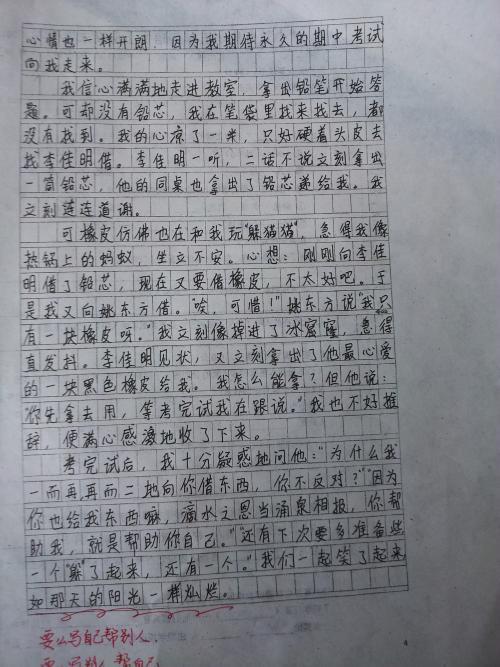 心情也一样开朗，因为我期待永久的期中考试
向我走来。
我信心满满地走进教室，拿出铅笔开始答
题。可却没有铅芯，我在笔袋里找来找去，都
没有找到。我的心凉了一半，只好硬着头皮去
找李佳明借。李佳明一听，二话不说立刻拿出
一筒铅芯，他的同桌也拿出了铅芯递给我。我
立刻连连道谢。
可橡皮仿佛也在和我玩“躲猫猫”，急得我像
热锅上的蚂蚁，坐立不安。心想：刚刚向李佳
明借了铅芯，现在又要借橡皮，不太好吧。于
是我又向姚东方借。“唉，可惜！”姚东方说“我只
有一块橡皮呀。”我立刻像掉进了冰窟窿，急得
直发抖。李佳明见状，又立刻拿出了他最心爱
的一块黑色橡皮给我。我怎么能拿？但他说：
“你先拿去用，等考完试我在跟说。”我也不好推
辞，便满心感激地收了下来。
考完试后，我十分疑惑地问他：“为什么我
一而再，再而三地向你借东西，你不反对？”“因为
你也给我东西嘛，滴水之恩当涌泉相报，你帮
助我，就是帮助你自己。”“还有下次要多准备些
一个“躲”了起来，还有一个。”我们一起笑了起来
如那天的阳光一样灿烂。
要么写自己帮别人，
要么写别人帮自己
4